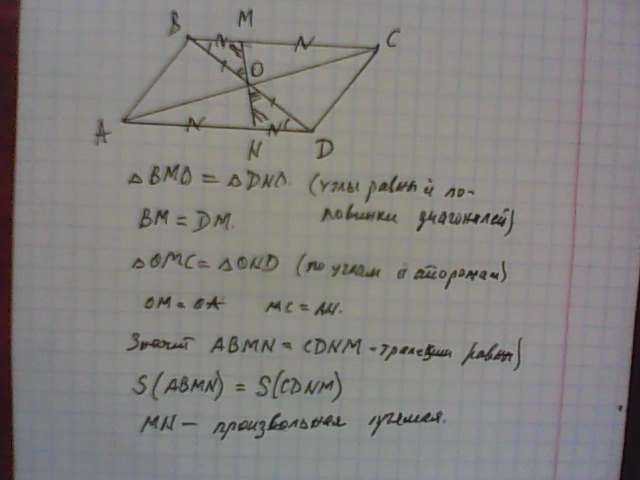 B M C
O
A N D
△BMO = △DNO. (углы равны и по-
ловинки диагоналей)
BM = DM.
△OMC = △OND (по углам и сторонам)
OM = OA MC = AN.
Значит ABMN = CDNM - трапеции равны)
S(ABMN) = S(CDNM)
MN - произвольная прямая.